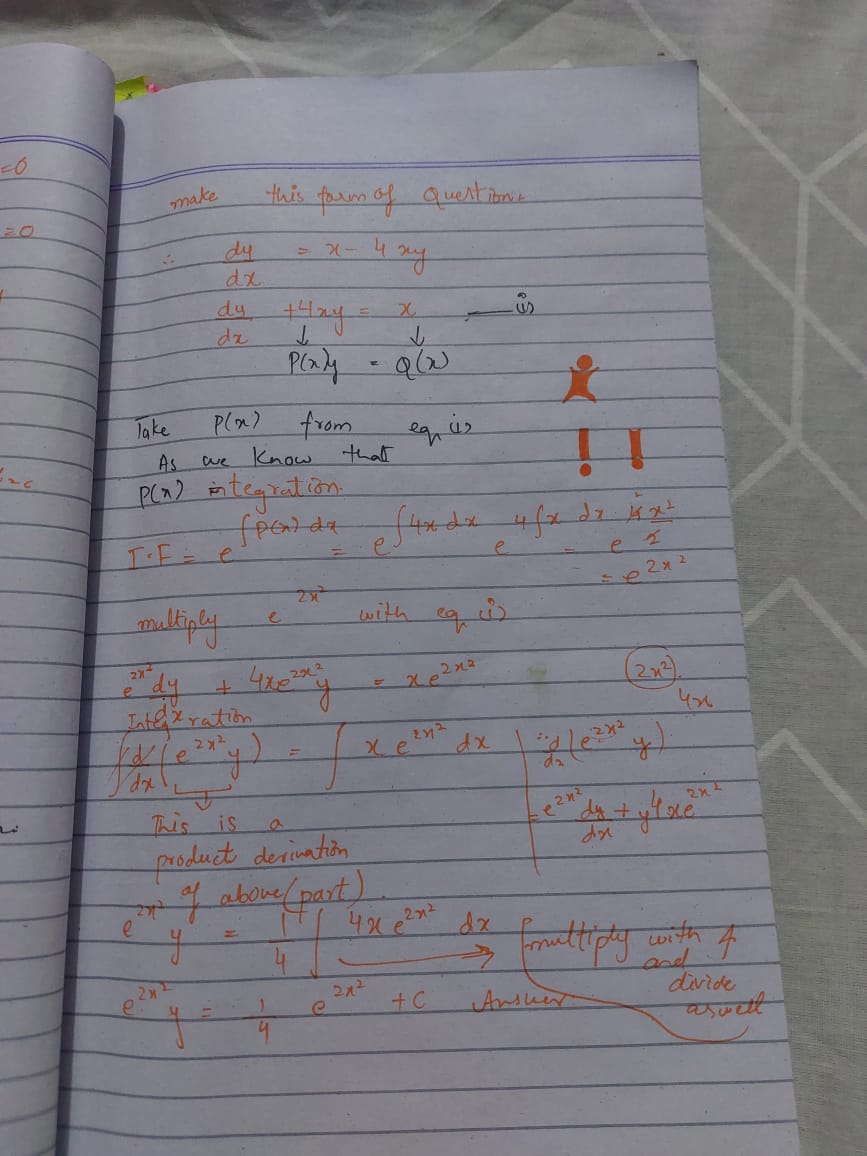 =0
=0
make this form of Question.
∴ dy/dx = x - 4xy
dy/dx + 4xy = x —(i)
↓ ↓
P(x)y = Q(x)
Take P(x) from eq (i)
As we Know that
P(x) integration.
I.F = e^∫P(x) dx = e^∫4x dx e^4∫x dx = e^4x²/2
= e^2x²
multiply e^2x² with eq (i)
e^2x² dy/dx + 4xe^2x² y = xe^2x²
2x²
4x
Integration
∫d/dx(e^2x² y) = ∫ x e^2x² dx
∵ d/dx(e^2x² y)
= e^2x² dy/dx + y4xe^2x²
This is a
product derivation
of above (part)
e^2x² y = 1/4 ∫ 4x e^2x² dx →
multiply with 4
and
divide
aswell
e^2x² y = 1/4 e^2x² + C Answer
! !